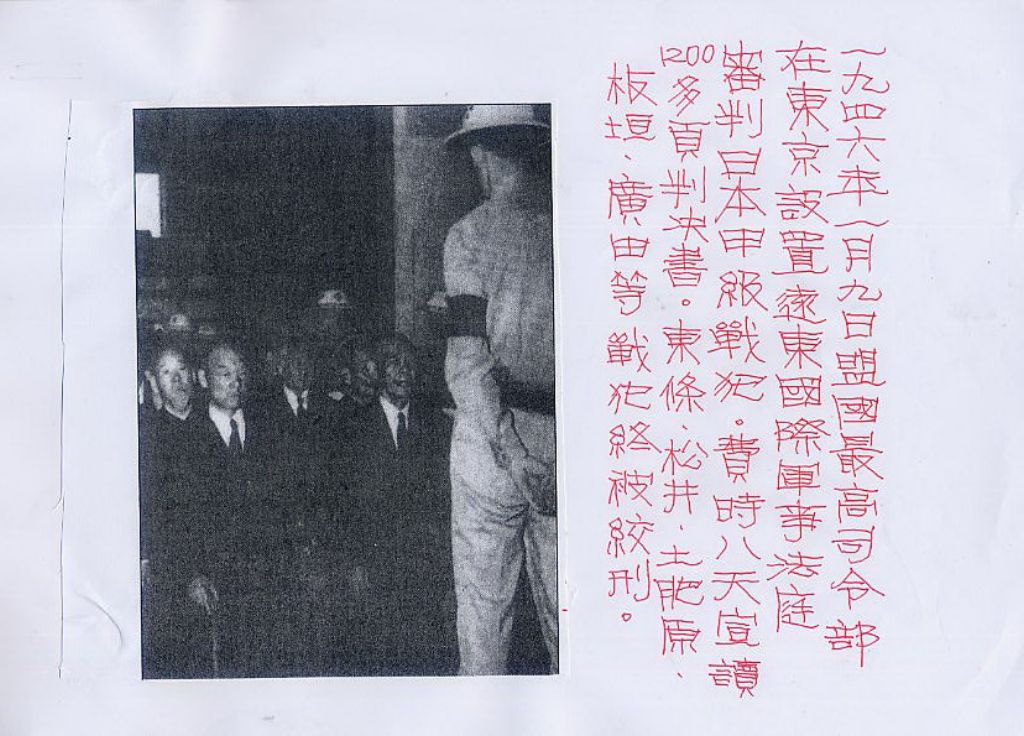 一九四六年一月九日盟國最高司令部
在東京設置遠東國際軍事法庭
審判日本甲級戰犯。費時八天宣讀
1200多頁判决書。東條、松井、土肥原、
板垣、廣田等戰犯終被絞刑。